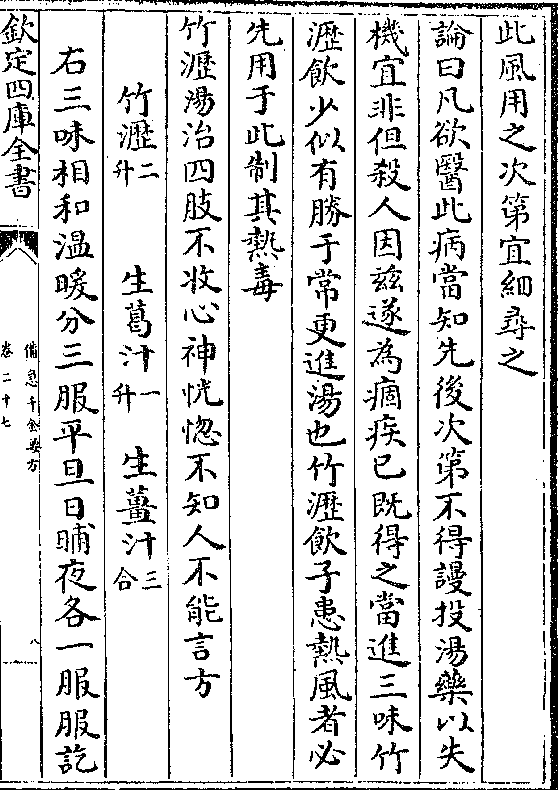 此風用之次第宜細尋之
論曰凡欲醫此病當知先後次第不得謾投湯藥以失
機宜非但殺人因茲遂為痼疾已既得之當進三味竹
瀝飲少似有勝于常更進湯也竹瀝飲子患熱風者必
先用于此制其熱毒
竹瀝湯治四肢不收心神恍惚不知人不能言方
竹瀝二升 生葛汁一升 生薑汁三合
右三味相和温暖分三服平旦日晡夜各一服服訖
欽定四庫全書
備急千金要方
卷二十七
八